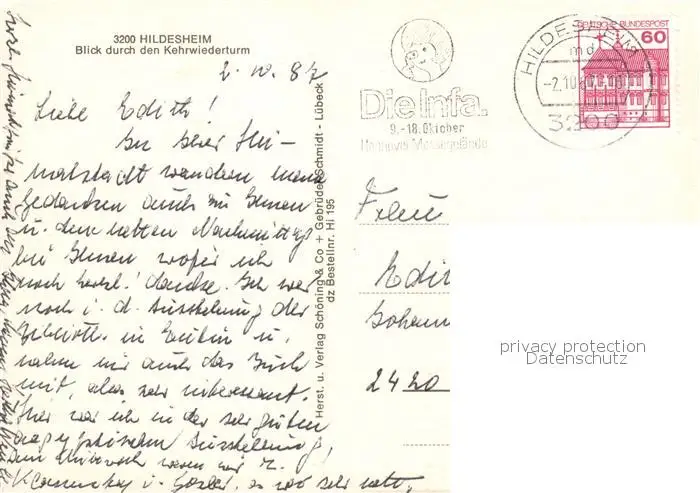 3200 HILDESHEIM
Blick durch den Kehrwiederturm
2. 10. 87
Liebe Edith!
In Ihrer Hei-
matstadt wandern meine
Gedanken auch zu Ihnen
u. dem netten Nachmittag
bei Ihnen wofür ich
noch herzl. danke. Ich war
noch i. d. Ausstellung der
in Eutin u.
nahm mir auch das Buch
mit, alles sehr interessant.
Hier war ich in der sehr guten
aegyptischen Ausstellung,
am Mittwoch waren wir
i. Goslar, es war sehr nett,
Herst. u. Verlag Schöning & Co + Gebrüder Schmidt - Lübeck
dz Bestellnr. Hi 195
Die Infa.
9.-18. Oktober
Hannover Messegelände
HILDESHEIM
md
-2.10.
3200
DEUTSCHE BUNDESPOST
60
Frau
Edi
Johann
2420
privacy protection
Datenschutz